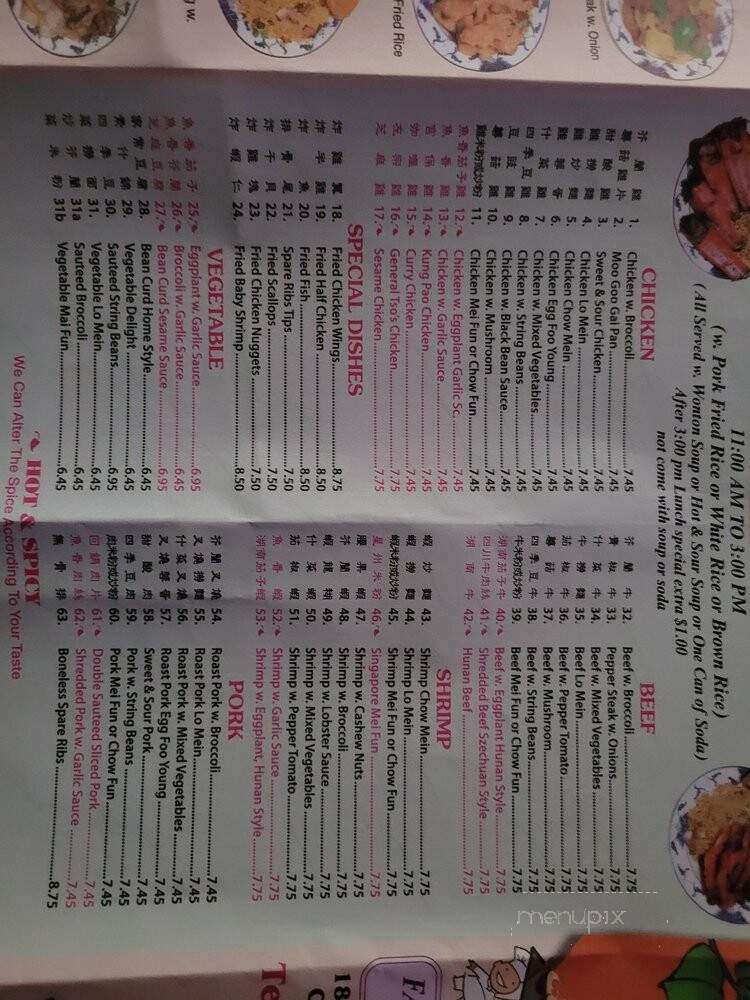 11:00 AM TO 3:00 PM
(w. Pork Fried Rice or White Rice or Brown Rice)
(All Served w. Wonton Soup or Hot & Sour Soup or One Can of Soda)
After 3:00 pm Lunch special extra $1.00
not come with soup or soda
CHICKEN
芥蘭雞 1. Chicken w. Broccoli 7.45
蘑菇雞片 2. Moo Goo Gai Pan 7.45
甜酸雞 3. Sweet & Sour Chicken 7.45
雞撈麵 4. Chicken Lo Mein 7.45
雞炒麵 5. Chicken Chow Mein 7.45
雞蓉蛋 6. Chicken Egg Foo Young 7.45
什菜雞 7. Chicken w. Mixed Vegetables 7.45
四季豆雞 8. Chicken w. String Beans 7.45
豆豉雞 9. Chicken w. Black Bean Sauce 7.45
蘑菇雞 10. Chicken w. Mushroom 7.45
雞米粉或炒粉 11. Chicken Mei Fun or Chow Fun 7.45
魚香茄子雞 12. Chicken w. Eggplant Garlic Sc. 7.45
魚香雞 13. Chicken w. Garlic Sauce 7.45
宮保雞 14. Kung Pao Chicken 7.45
咖哩雞 15. Curry Chicken 7.45
左宗雞 16. General Tso's Chicken 7.75
芝麻雞 17. Sesame Chicken 7.75
SPECIAL DISHES
炸雞翼 18. Fried Chicken Wings 8.75
炸半雞 19. Fried Half Chicken 8.50
炸魚 20. Fried Fish 8.50
排骨尾 21. Spare Ribs Tips 7.50
炸干貝 22. Fried Scallops 7.50
炸雞塊 23. Fried Chicken Nuggets 7.50
炸蝦仁 24. Fried Baby Shrimp 8.50
VEGETABLE
魚香茄子 25. Eggplant w. Garlic Sauce 6.95
魚香芥蘭 26. Broccoli w. Garlic Sauce 6.45
芝麻豆腐 27. Bean Curd Sesame Sauce 6.95
家常豆腐 28. Bean Curd Home Style 6.45
素什錦 29. Vegetable Delight 6.45
四季豆 30. Sauteed String Beans 6.95
菜撈麵 31. Vegetable Lo Mein 6.45
炒芥蘭 31a Sauteed Broccoli 6.45
菜米粉 31b Vegetable Mai Fun 6.45
HOT & SPICY
We Can Alter The Spice According To Your Taste
BEEF
芥蘭牛 32. Beef w. Broccoli 7.75
青椒牛 33. Pepper Steak w. Onions 7.75
什菜牛 34. Beef w. Mixed Vegetables 7.75
牛撈麵 35. Beef Lo Mein 7.75
茄椒牛 36. Beef w. Pepper Tomato 7.75
蘑菇牛 37. Beef w. Mushroom 7.75
四季豆牛 38. Beef w. String Beans 7.75
牛米粉或炒粉 39. Beef Mei Fun or Chow Fun 7.75
湖南茄子牛 40. Beef w. Eggplant Hunan Style 7.75
四川牛肉絲 41. Shredded Beef Szechuan Style 7.75
湖南牛 42. Hunan Beef 7.75
SHRIMP
蝦炒麵 43. Shrimp Chow Mein 7.75
蝦撈麵 44. Shrimp Lo Mein 7.75
蝦米粉或炒粉 45. Shrimp Mei Fun or Chow Fun 7.75
星州米粉 46. Singapore Mei Fun 7.75
腰果蝦 47. Shrimp w. Cashew Nuts 7.75
芥蘭蝦 48. Shrimp w. Broccoli 7.75
蝦龍糊 49. Shrimp w. Lobster Sauce 7.75
什菜蝦 50. Shrimp w. Mixed Vegetables 7.75
茄椒蝦 51. Shrimp w. Pepper Tomato 7.75
魚香蝦 52. Shrimp w. Garlic Sauce 7.75
湖南茄子蝦 53. Shrimp w. Eggplant, Hunan Style 7.75
PORK
芥蘭叉燒 54. Roast Pork w. Broccoli 7.45
叉燒撈麵 55. Roast Pork Lo Mein 7.45
什菜叉燒 56. Roast Pork w. Mixed Vegetables 7.45
叉燒蓉蛋 57. Roast Pork Egg Foo Young 7.45
甜酸肉 58. Sweet & Sour Pork 7.45
四季豆肉 59. Pork w. String Beans 7.45
肉米粉或炒粉 60. Pork Mei Fun or Chow Fun 7.45
回鍋肉片 61. Double Sauteed Sliced Pork 7.45
魚香肉絲 62. Shredded Pork w. Garlic Sauce 7.45
無骨排 63. Boneless Spare Ribs 8.75
g w.
Fried Rice
ak w. Onion
FA
18
Te
menupix